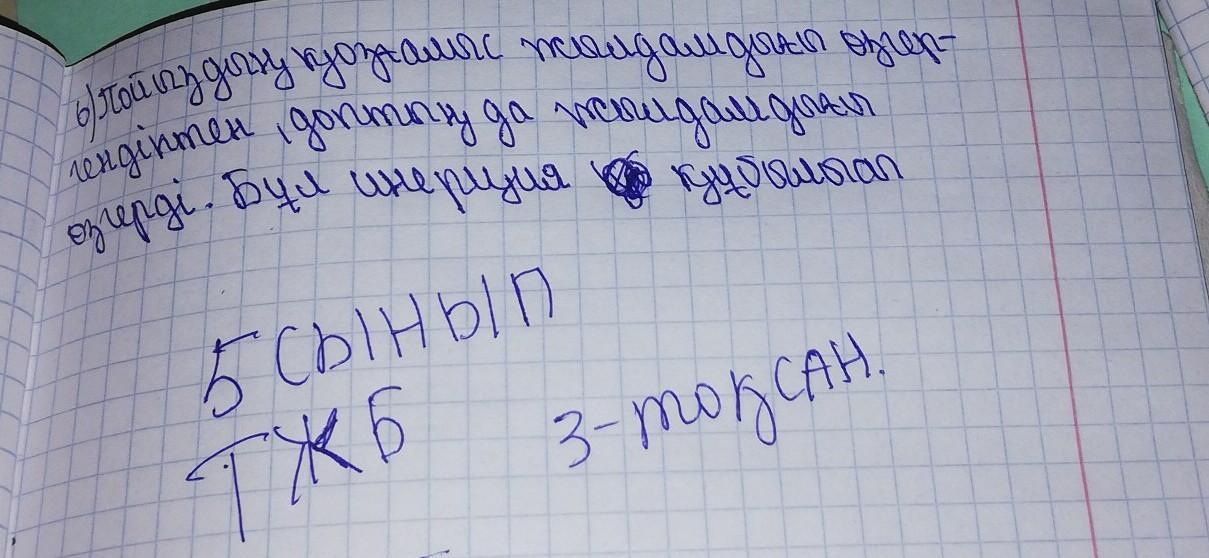 б) Пойыздың қозғалыс жылдамдығы өзгер-
гендіктен, доптың да жылдамдығы
өзгерді. Бұл инерция құбылысы
5 СЫНЫП
ТЖБ 3-тоқСАН.